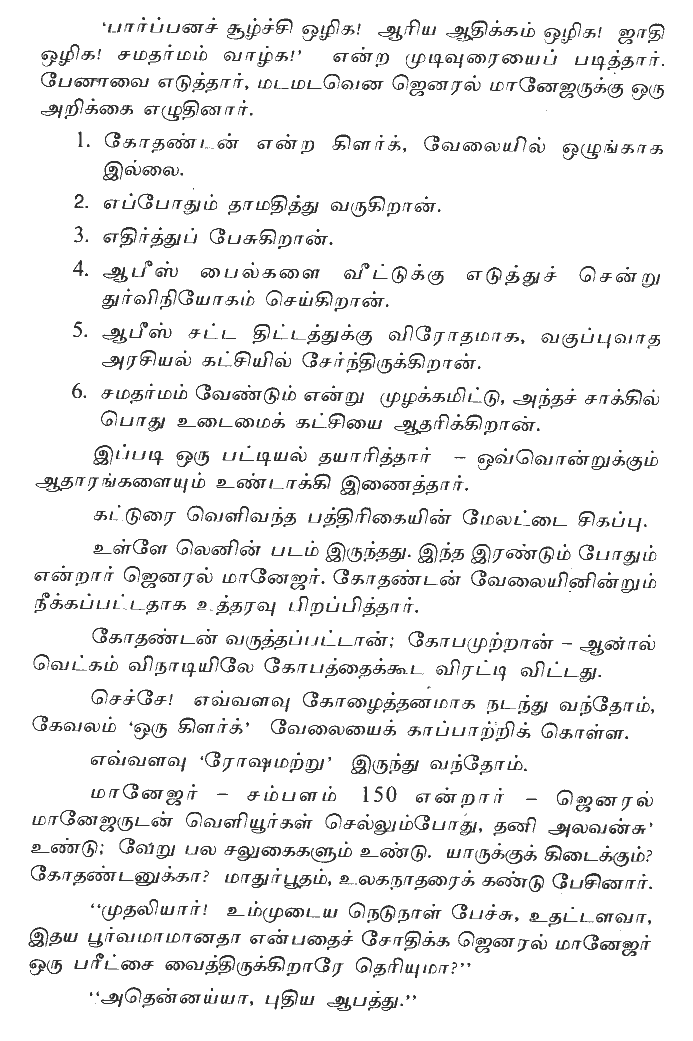 ‘பார்ப்பனச் சூழ்ச்சி ஒழிக! ஆரிய ஆதிக்கம் ஒழிக! ஜாதி
ஒழிக! சமதர்மம் வாழ்க!’ என்ற முடிவுரையைப் படித்தார்.
பேனாவை எடுத்தார், மடமடவென ஜெனரல் மானேஜருக்கு ஒரு
அறிக்கை எழுதினார்.
1. கோதண்டன் என்ற கிளர்க், வேலையில் ஒழுங்காக
இல்லை.
2. எப்போதும் தாமதித்து வருகிறான்.
3. எதிர்த்துப் பேசுகிறான்.
4. ஆபீஸ் பைல்களை வீட்டுக்கு எடுத்துச் சென்று
துர்விநியோகம் செய்கிறான்.
5. ஆபீஸ் சட்ட திட்டத்துக்கு விரோதமாக, வகுப்புவாத
அரசியல் கட்சியில் சேர்ந்திருக்கிறான்.
6. சமதர்மம் வேண்டும் என்று முழக்கமிட்டு, அந்தச் சாக்கில்
பொது உடைமைக் கட்சியை ஆதரிக்கிறான்.
இப்படி ஒரு பட்டியல் தயாரித்தார் – ஒவ்வொன்றுக்கும்
ஆதாரங்களையும் உண்டாக்கி இணைத்தார்.
கட்டுரை வெளிவந்த பத்திரிகையின் மேலட்டை சிகப்பு.
உள்ளே லெனின் படம் இருந்தது. இந்த இரண்டும் போதும்
என்றார் ஜெனரல் மானேஜர். கோதண்டன் வேலையினின்றும்
நீக்கப்பட்டதாக உத்தரவு பிறப்பித்தார்.
கோதண்டன் வருத்தப்பட்டான்; கோபமுற்றான் – ஆனால்
வெட்கம் விநாடியிலே கோபத்தைக்கூட விரட்டி விட்டது.
செச்சே! எவ்வளவு கோழைத்தனமாக நடந்து வந்தோம்,
கேவலம் ‘ஒரு கிளர்க்’ வேலையைக் காப்பாற்றிக் கொள்ள.
எவ்வளவு ‘ரோஷமற்று’ இருந்து வந்தோம்.
மானேஜர் – சம்பளம் 150 என்றார் – ஜெனரல்
மானேஜருடன் வெளியூர்கள் செல்லும்போது, தனி அலவன்சு’
உண்டு; வேறு பல சலுகைகளும் உண்டு. யாருக்குக் கிடைக்கும்?
கோதண்டனுக்கா? மாதுர்பூதம், உலகநாதரைக் கண்டு பேசினார்.
“முதலியார்! உம்முடைய நெடுநாள் பேச்சு, உதட்டளவா,
இதய பூர்வமாமானதா என்பதைச் சோதிக்க ஜெனரல் மானேஜர்
ஒரு பரீட்சை வைத்திருக்கிறாரே தெரியுமா?”
“அதென்னய்யா, புதிய ஆபத்து.”